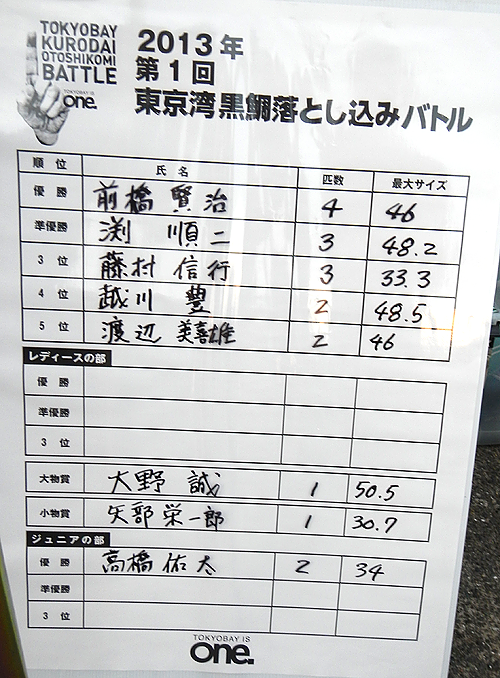 TOKYOBAY
KURODAI
OTOSHIKOMI
BATTLE
TOKYOBAY IS
one.
2013年
第1回
東京湾黒鯛落とし込みバトル
順位 氏名 匹数 最大サイズ
優勝 前橋 賢治 4 46
準優勝 渕 順二 3 48.2
3位 藤村 信行 3 33.3
4位 越川 豊 2 48.5
5位 渡辺 美喜雄 2 46
レディースの部
優勝
準優勝
3位
大物賞 大野 誠 1 50.5
小物賞 矢部 栄一郎 1 30.7
ジュニアの部
優勝 高橋 佑太 2 34
準優勝
3位
TOKYOBAY IS
one.